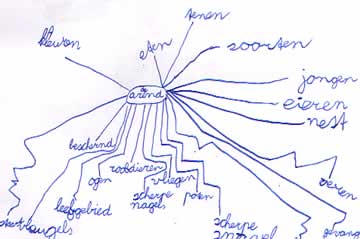 tenen
kleuren
eten
soorten
de
arend
jongen
eieren
nest
beschermd
roofdieren
ogen
vliegen
veren
leefgebied
scherpe
nagels
poten
vleugels
scherpe